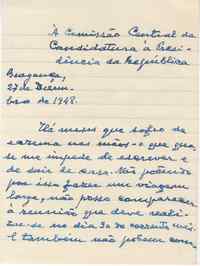 À Comissão Central da
Candidatura à Presi-
dência da República
Bragança,
27 de Dezem-
bro de 1948.
Há meses que sofro de
eczema nas mãos - o que que-
se me impede de escrever e
de sair de casa. Não podendo
por isso fazer um viagem
longa, não posso comparecer
à reunião que deve reali-
zar-se no dia 30 do corrente mês
e também não poderei com-